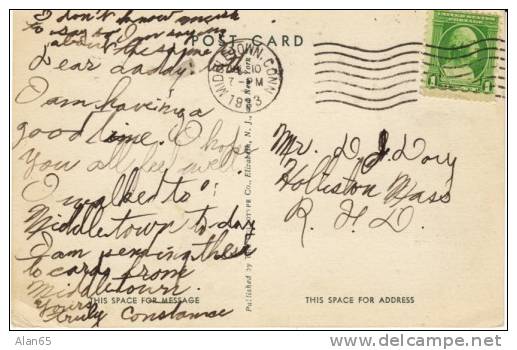 I don't know much
to say so I am say
about the same with
POST CARD
Dear Daddy:
I am having a
good time. I hope
You all feel well.
I walked to
Middletown to day
I am sending these
to cards from
Middletown.
Yours
truly Constance
THIS SPACE FOR MESSAGE
MIDDLETOWN, CONN
10
7- PM
UNITED STATES POSTAGE
1
Published by Co., Elizabeth, N. J., and New York
Mr. D. J. Dory
Holliston Mass
R. F. D.
THIS SPACE FOR ADDRESS
Alan65
http://www.delcampe.net